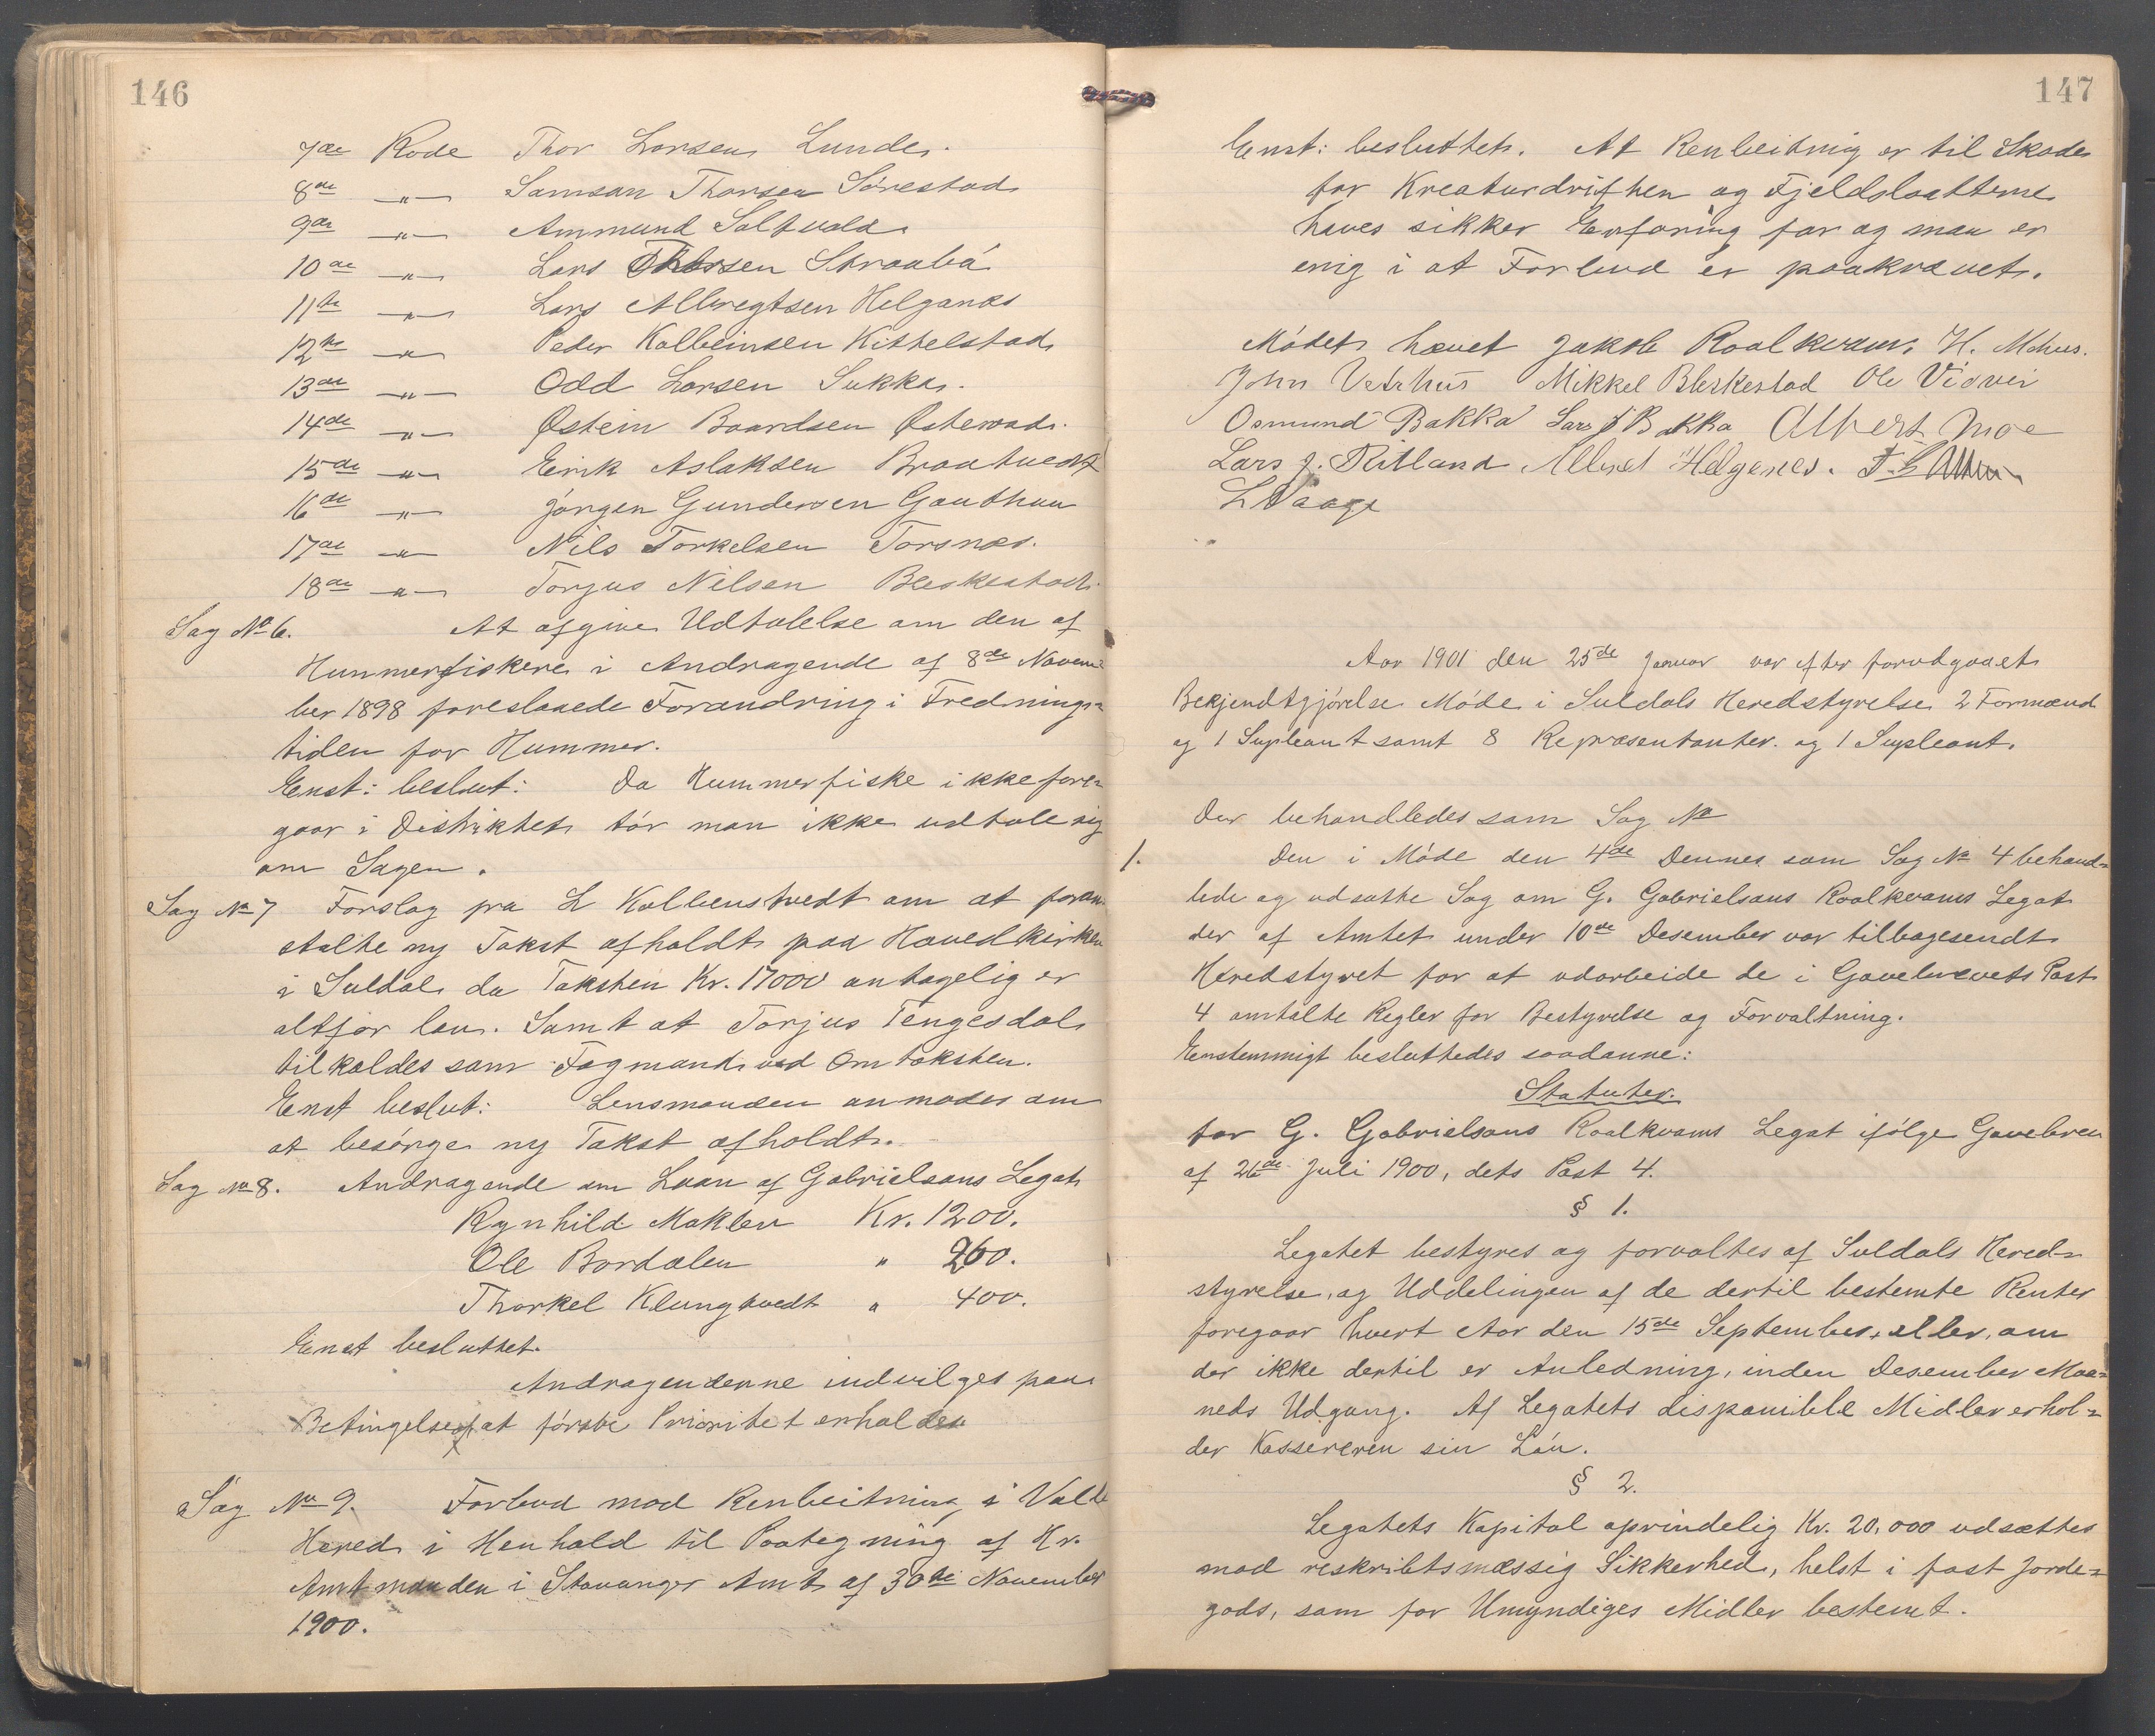 146
7de Rode Thor Larsen Lunde.
8de —"— Samson Thorsen Sørestad
9de —"— Ammund Saltvold
10de —"— Lars Thorsen Straabø
11te —"— Lars Albregtsen Helganes
12te —"— Peder Kolbeinsen Kittelstad
13de —"— Odd Larsen Sukka.
14de —"— Østein Baardsen
15de —"— Eirik Aslaksen Braatvedt
16de —"— Jørgen Gundersen Gauthun
17de —"— Nils Torkelsen Torsnes.
18de —"— Torjus Nilsen Bleskestad.
Sag No 6. At afgive Udtalelse om den af
Hummerfiskere i Andragende af 8de Novem-
ber 1898 foreslaaede Forandring i Frednings-
tiden for Hummer.
Enst: beslut: Da Hummerfiske ikke fore-
gaar i Distriktet tør man ikke udtale sig
om Sagen.
Sag No 7 Forslag fra L Kolbenstvedt om at foran-
stalte ny Takst afholdt paa Hovedkirken
i Suldal da Taksten Kr. 17000 antagelig er
altfor lav. Samt at Torjus Tengesdal
tilkaldes som Fagmand ved Omtaksten.
Enst beslut: Lensmanden anmodes om
at besørge ny Takst afholdt.
Sag No 8. Andragende om Laan af Gabrielsens Legat
Rgnhild Moklev Kr. 1200.
Ole Bordalen " 260.
Thorkel Klungtvedt " 400.
Enst besluttet.
Andragenderne indvilges paa
Betingelse at første Prioritet erholdes
Sag No 9. Forbud mod Renbeitning i Valle
Hered i Henhold til Paategning af Hr.
Amtmanden i Stavanger Amt af 30te November
1900.
147
Enst: besluttet. At Renbeitning er til Skade
for Kreaturdriften og Fjeldslaatterne
haves sikker Erfaring for og man er
enig i at Forbud er paakrævet.
Mødet hævet Jakob Roalkvam. H. Mehus.
John Vetrhus Mikkel Bleskestad Ole Vidvei
Osmund Bakka Lars J Bakka Albert Moe
Lars J. Ritland Albret Helgenes.
L Vaage
Aar 1901 den 25de Januar var efter forudgaaet
Bekjendtgjørelse Møde i Suldals Heredstyrelse 2 Formænd
og 1 Supleant samt 8 Repræsentanter og 1 Supleant.
Der behandledes som Sag No
1. Den i Møde den 4de Dennes som Sag No 4 behand-
lede og udsatte Sag om G. Gabrielsens Roalkvams Legat
der af Amtet under 10de Desember var tilbagesendt
Heredstyret for at udarbeide de i Gavebrevets Post
4 omtalte Regler for Bestyrelse og Forvaltning.
Enstemmigt besluttedes saadanne:
Statuter.
for G. Gabrielsens Roalkvams Legat ifølge Gavebrev
af 26de Juli 1900, dets Post 4.
§ 1.
Legatet bestyres og forvaltes af Suldals Hered-
styrelse, og Uddelingen af de dertil bestemte Renter
foregaar hvert Aar den 15de September, eller, om
der ikke dertil er Anledning, inden Desember Maa-
neds Udgang. Af Legatets disponible Midler erhol-
der Kassereren sin Løn.
§ 2.
Legatets Kapital oprindelig Kr. 20,000 udsættes
mod reskriptsmæssig Sikkerhed, helst i fast Jorde-
gods, som for Umyndiges Midler bestemt.